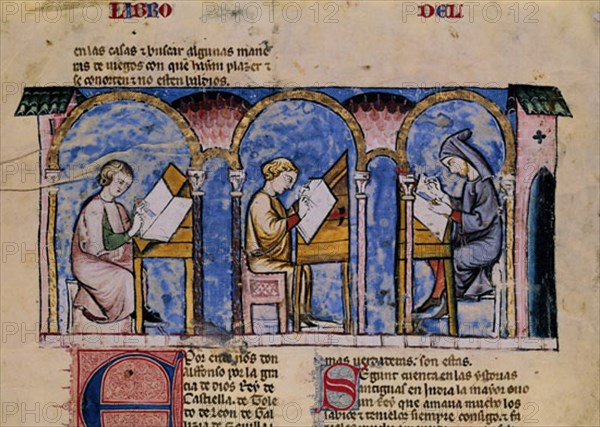 LIBRO DEL
en las casas & buscar algunas mane
ras de iuegos con que hayan plazer &
se conorten & no esten baldios.
Por ende nos don
alffonso por la gra
cia de dios Rey de
Castiella. de Tole
do de Leon de Gal
lizia de Seuilla
mas uerdaderas. son estas.
Segunt cuenta en las ystorias
antiguas en India la mayor ouo
un Rey que amaua mucho los
sabios & tenielos siempre consigo. &